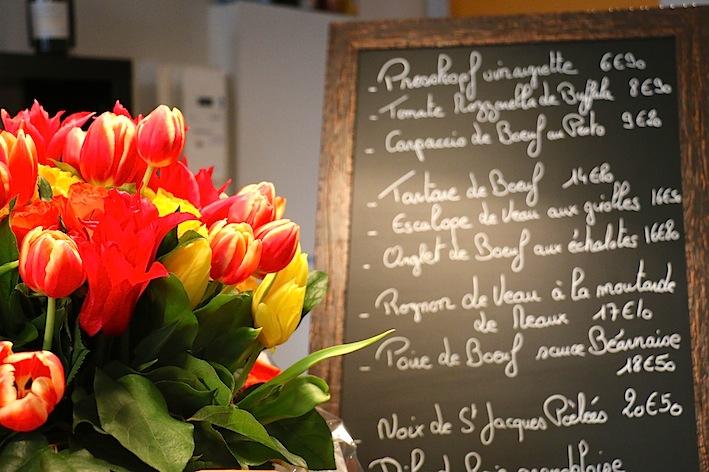 - Presskopf vinaigrette 6€90
- Tomate Mozzarella de Buffale 8€90
- Carpaccio de Boeuf au Pesto 9€80
- Tartare de Boeuf 14€80
- Escalope de Veau aux girolles 16€50
- Onglet de Boeuf aux échalotes 16€80
- Rognon de Veau à la moutarde
de Meaux 17€10
- Poire de Boeuf sauce Béarnaise
18€50
Noix de St Jacques Poêlées 20€50